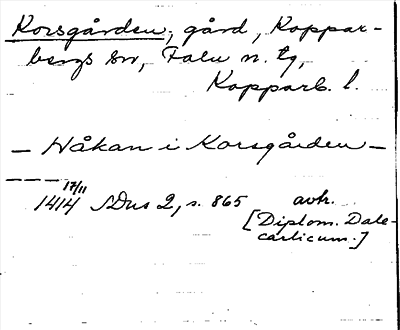 Korsgården, gård, Koppar-
bergs sn, Falu n. tg,
Kopparb. l.
— Håkan i Korsgården —
— — — 17/11
1414 SDns 2, s. 865 avtr.
[Diplom. Dale-
carlicum.]